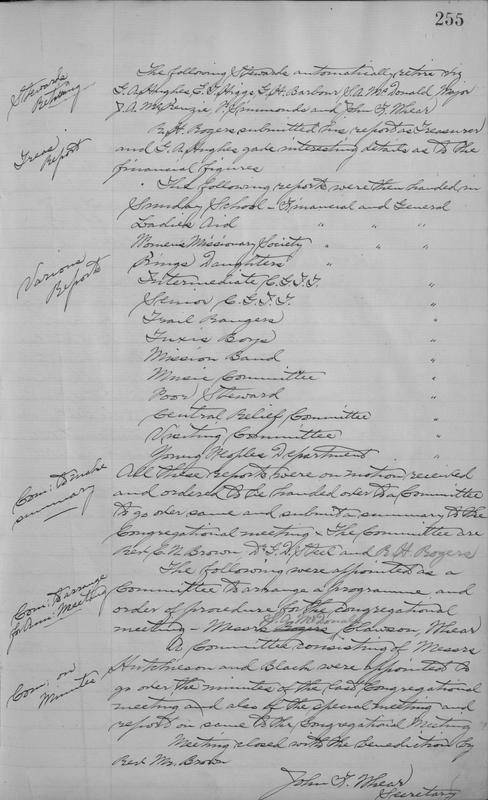 255
Stewards
Retiring
The following Stewards automatically retire viz
G. A. Hughes, E. F. Higgs, G. H. Barbour, S. A. McDonald, Major
J. A. McKenzie, P. Simmonds and John F. Whear
Treas.
Report
R. H. Rogers submitted his report as Treasurer
and G. A. Hughes gave interesting details as to the
financial figures
The following reports were then handed in
Sunday School - Financial and General
Ladies Aid " " "
Womens Missionary Society " " "
Various
Reports
Kings Daughters "
Intermediate C.G.I.T. "
Senior C.G.I.T. "
Trail Rangers "
Tuxis Boys "
Mission Band "
Music Committee "
Poor Steward "
Central Relief Committee "
Visiting Committee "
Young Peoples Department "
Com: to make
summary
All these reports were on motion received
and ordered to be handed over to a Committee
to go over same and submit a summary to the
Congregational meeting - The Committee are
Rev. C. N. Brown, Dr. G. D. Steel and R. H. Rogers
The following were appointed as a
Com: to arrange
for Ann: Meeting
Committee to arrange a programme and
order of procedure for the Congregational
S. A. McDonald
meeting - Messrs Rogers, Clawson, Whear
A Committee consisting of Messrs
Com: on
Minutes
Hutcheson and Black were appointed to
go over the minutes of the last Congregational
meeting and also of the special meeting and
report on same to the Congregational Meeting
Meeting closed with the benediction by
Rev. Mr. Brown
John F. Whear
Secretary